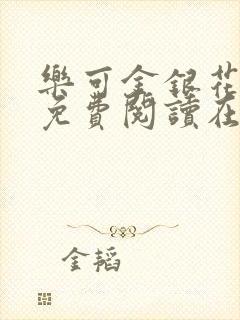 樂可金銀花
免費閱讀在
金韜